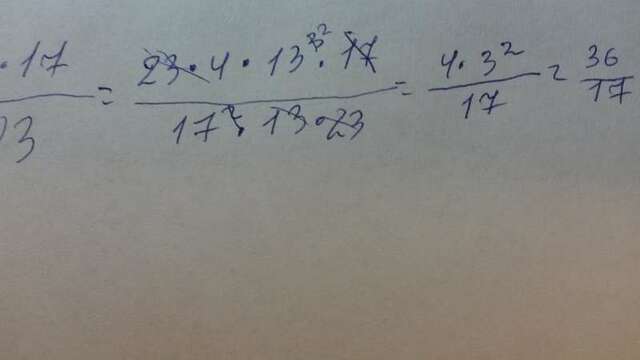 ·17/23 = 23·4·13·17/17²·13·23 = 4·3²/17 = 36/17